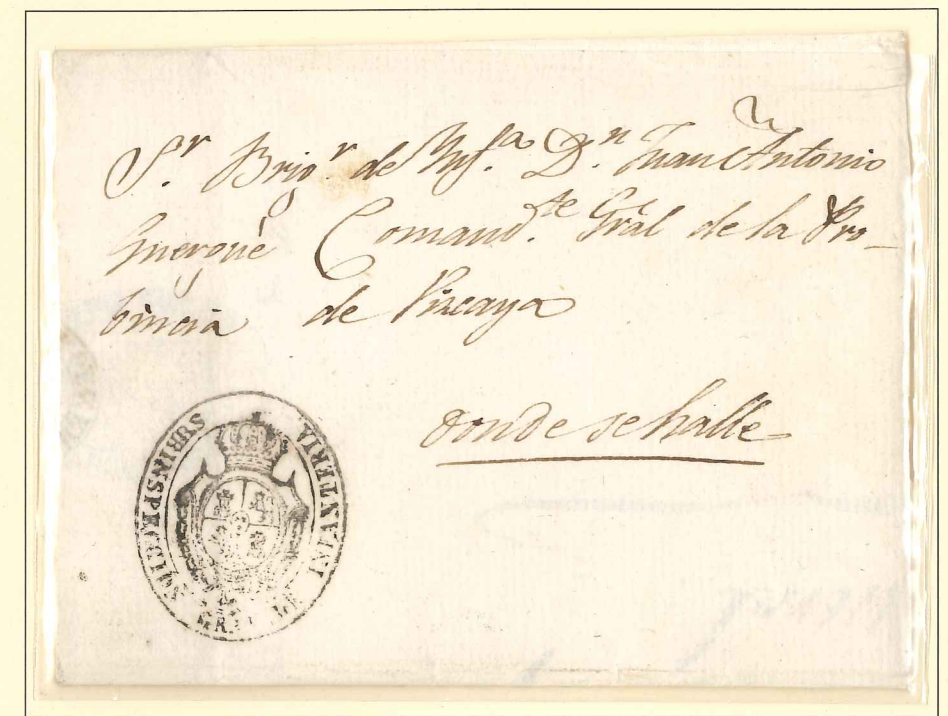 Sr. Brigr. de Ynfa. Dn. Juan Antonio
Guergué Comandte. Gral de la Pro-
bincia de Vizcaya
donde se halle
SUBINSPECCION GRAL DE INFANTERIA